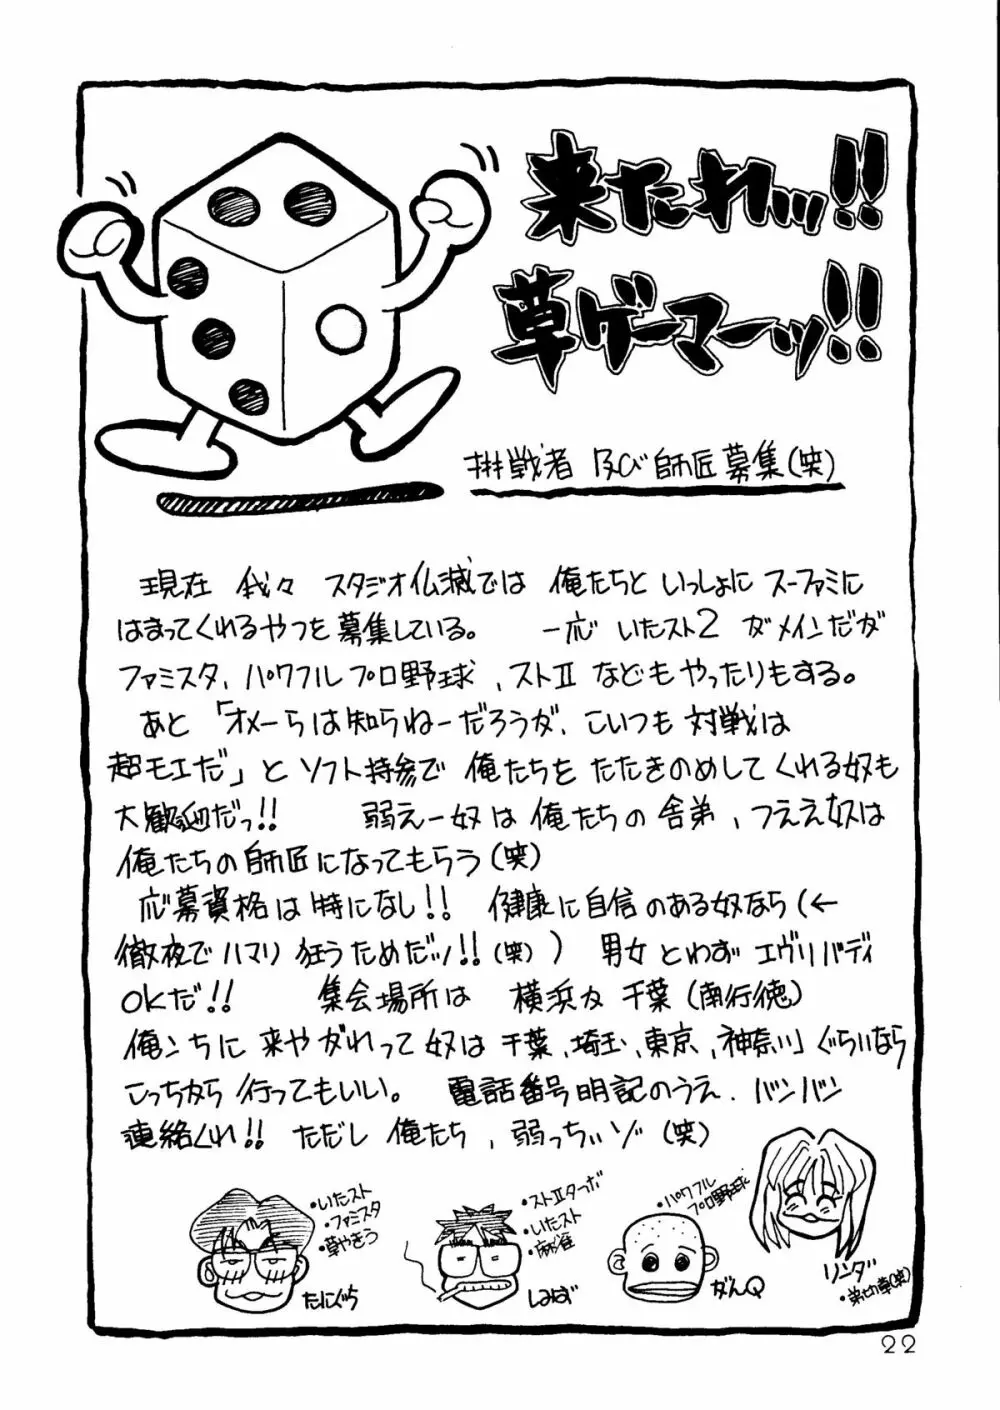 来たれッ!!
草ゲーマーッ!!
挑戦者 及び師匠募集(笑)
現在 我々 スタジオ仏滅では 俺たちと いっしょに スーファミに
はまってくれるやつを募集している。 一応 いたスト2 がメインだが
ファミスタ、パワフルプロ野球、ストⅡ などもやったりもする。
あと「オメーらは知らねーだろうが、こいつも 対戦は
超モエだ」と ソフト持参で 俺たちを たたきのめして くれる奴も
大歓迎だっ!! 弱えー奴は 俺たちの 舎弟、つええ奴は
俺たちの師匠になってもらう(笑)
応募資格は特になし!! 健康に自信のある奴なら(←
徹夜でハマリ狂うためだッ!!(笑)) 男女とわず エヴリバディ
OKだ!! 集会場所は 横浜か 千葉(南行徳)
俺ンちに 来やがれって 奴は 千葉、埼玉、東京、神奈川ぐらいなら
こっちから行ってもいい。 電話番号明記のうえ、バンバン
連絡くれ!! ただし 俺たち、弱っちぃゾ(笑)
・いたスト
・ファミスタ
・草やきう
たにぐち
・ストⅡターボ
・いたスト
・麻雀
しみず
・パワフル
プロ野球
がんQ
リンダ
・弟切草(笑)
22